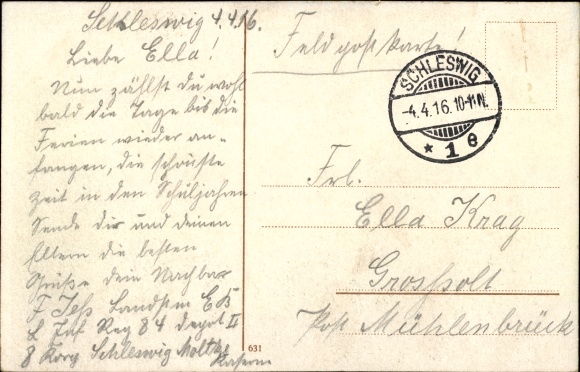 Schleswig 4.4.16.
Liebe Ella!
Nun zählst du wohl
bald die Tage bis die
Ferien wieder an-
fangen, die schönste
Zeit in den Schuljahren
Sende dir und deinen
Eltern die besten
Grüße dein Nachbar
J Jeß Landstm E B
L Inf Reg 84 depot II
8 Korp Schleswig Moltke
Kaserne
Feldpostkarte!
SCHLESWIG
-4.4.16.10-11N.
* 1 e
Frl.
Ella Krag
Grossolt
Post Mühlenbrück
631